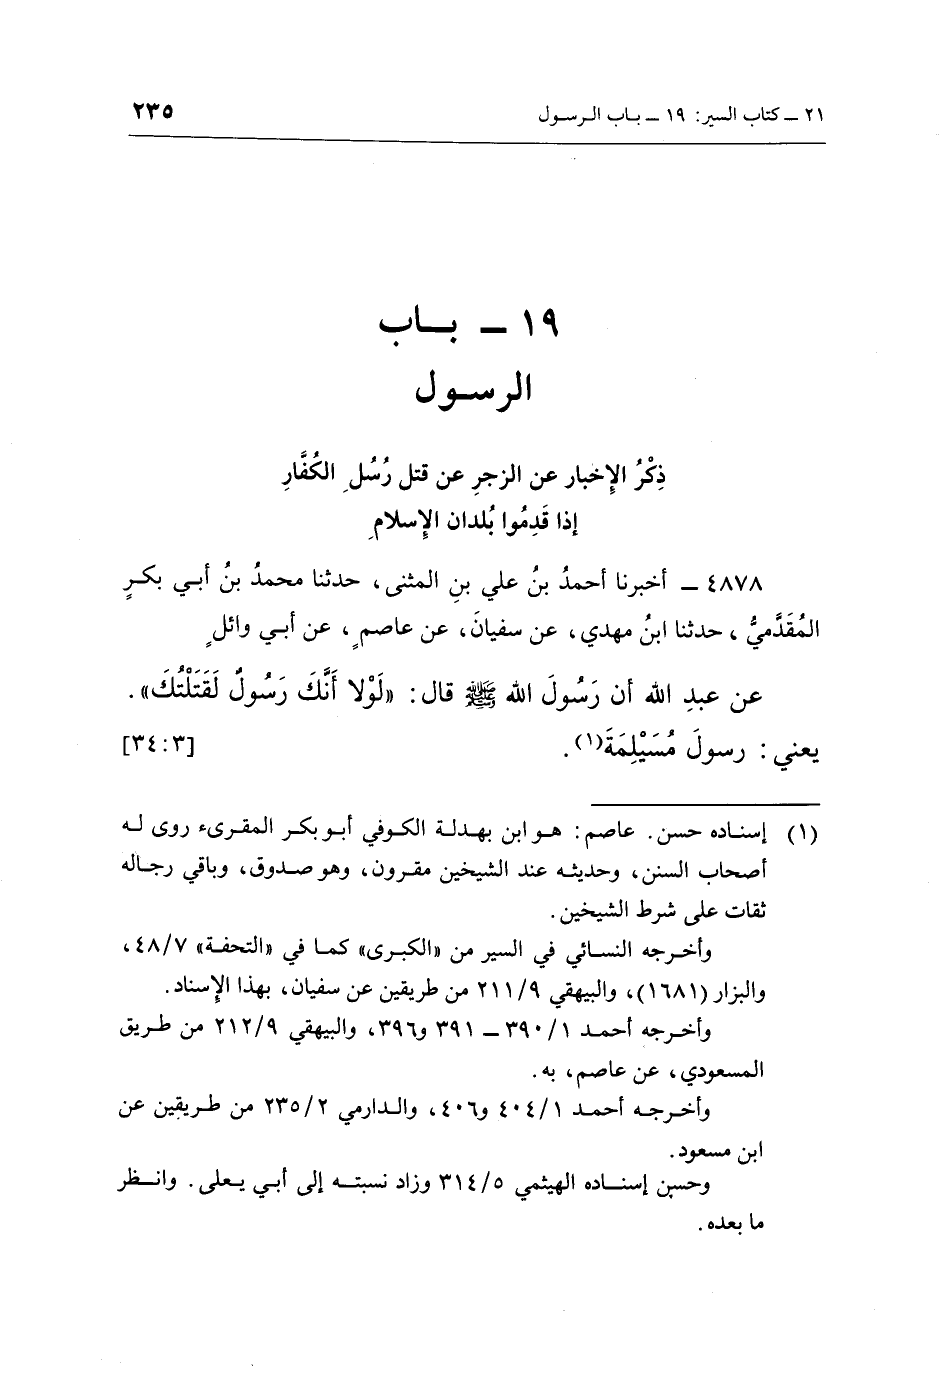 ٢١ ــ كتاب السير: ١٩ ــ باب الرسول
٢٣٥
١٩ ــ بـاب
الرسول
ذِكْرُ الإِخبار عن الزجرِ عن قتل رُسُلِ الكُفَّارِ
إذا قَدِمُوا بُلدان الإِسلامِ
٤٨٧٨ ــ أخبرنا أحمدُ بنُ علي بنِ المثنى، حدثنا محمدُ بنُ أبي بكرٍ
المُقَدَّميُّ، حدثنا ابنُ مهدي، عن سفيانَ، عن عاصمٍ، عن أبي وائلٍ
عن عبدِ الله أن رَسُولَ الله ﷺ قال: «لَوْلا أَنَّكَ رَسُولٌ لَقَتَلْتُكَ».
يعني: رسولَ مُسَيْلِمَةَ(١). [٣٤:٣]
(١) إسناده حسن. عاصم: هو ابن بهدلة الكوفي أبو بكر المقرىء روى له
أصحاب السنن، وحديثه عند الشيخين مقرون، وهو صدوق، وباقي رجاله
ثقات على شرط الشيخين.
وأخرجه النسائي في السير من «الكبرى» كما في «التحفة» ٤٨/٧،
والبزار (١٦٨١)، والبيهقي ٢١١/٩ من طريقين عن سفيان، بهذا الإسناد.
وأخرجه أحمد ٣٩٠/١ ــ ٣٩١ و٣٩٦، والبيهقي ٢١٢/٩ من طريق
المسعودي، عن عاصم، به.
وأخرجه أحمد ٤٠٤/١ و٤٠٦، والدارمي ٢٣٥/٢ من طريقين عن
ابن مسعود.
وحسن إسناده الهيثمي ٣١٤/٥ وزاد نسبته إلى أبي يعلى. وانظر
ما بعده.